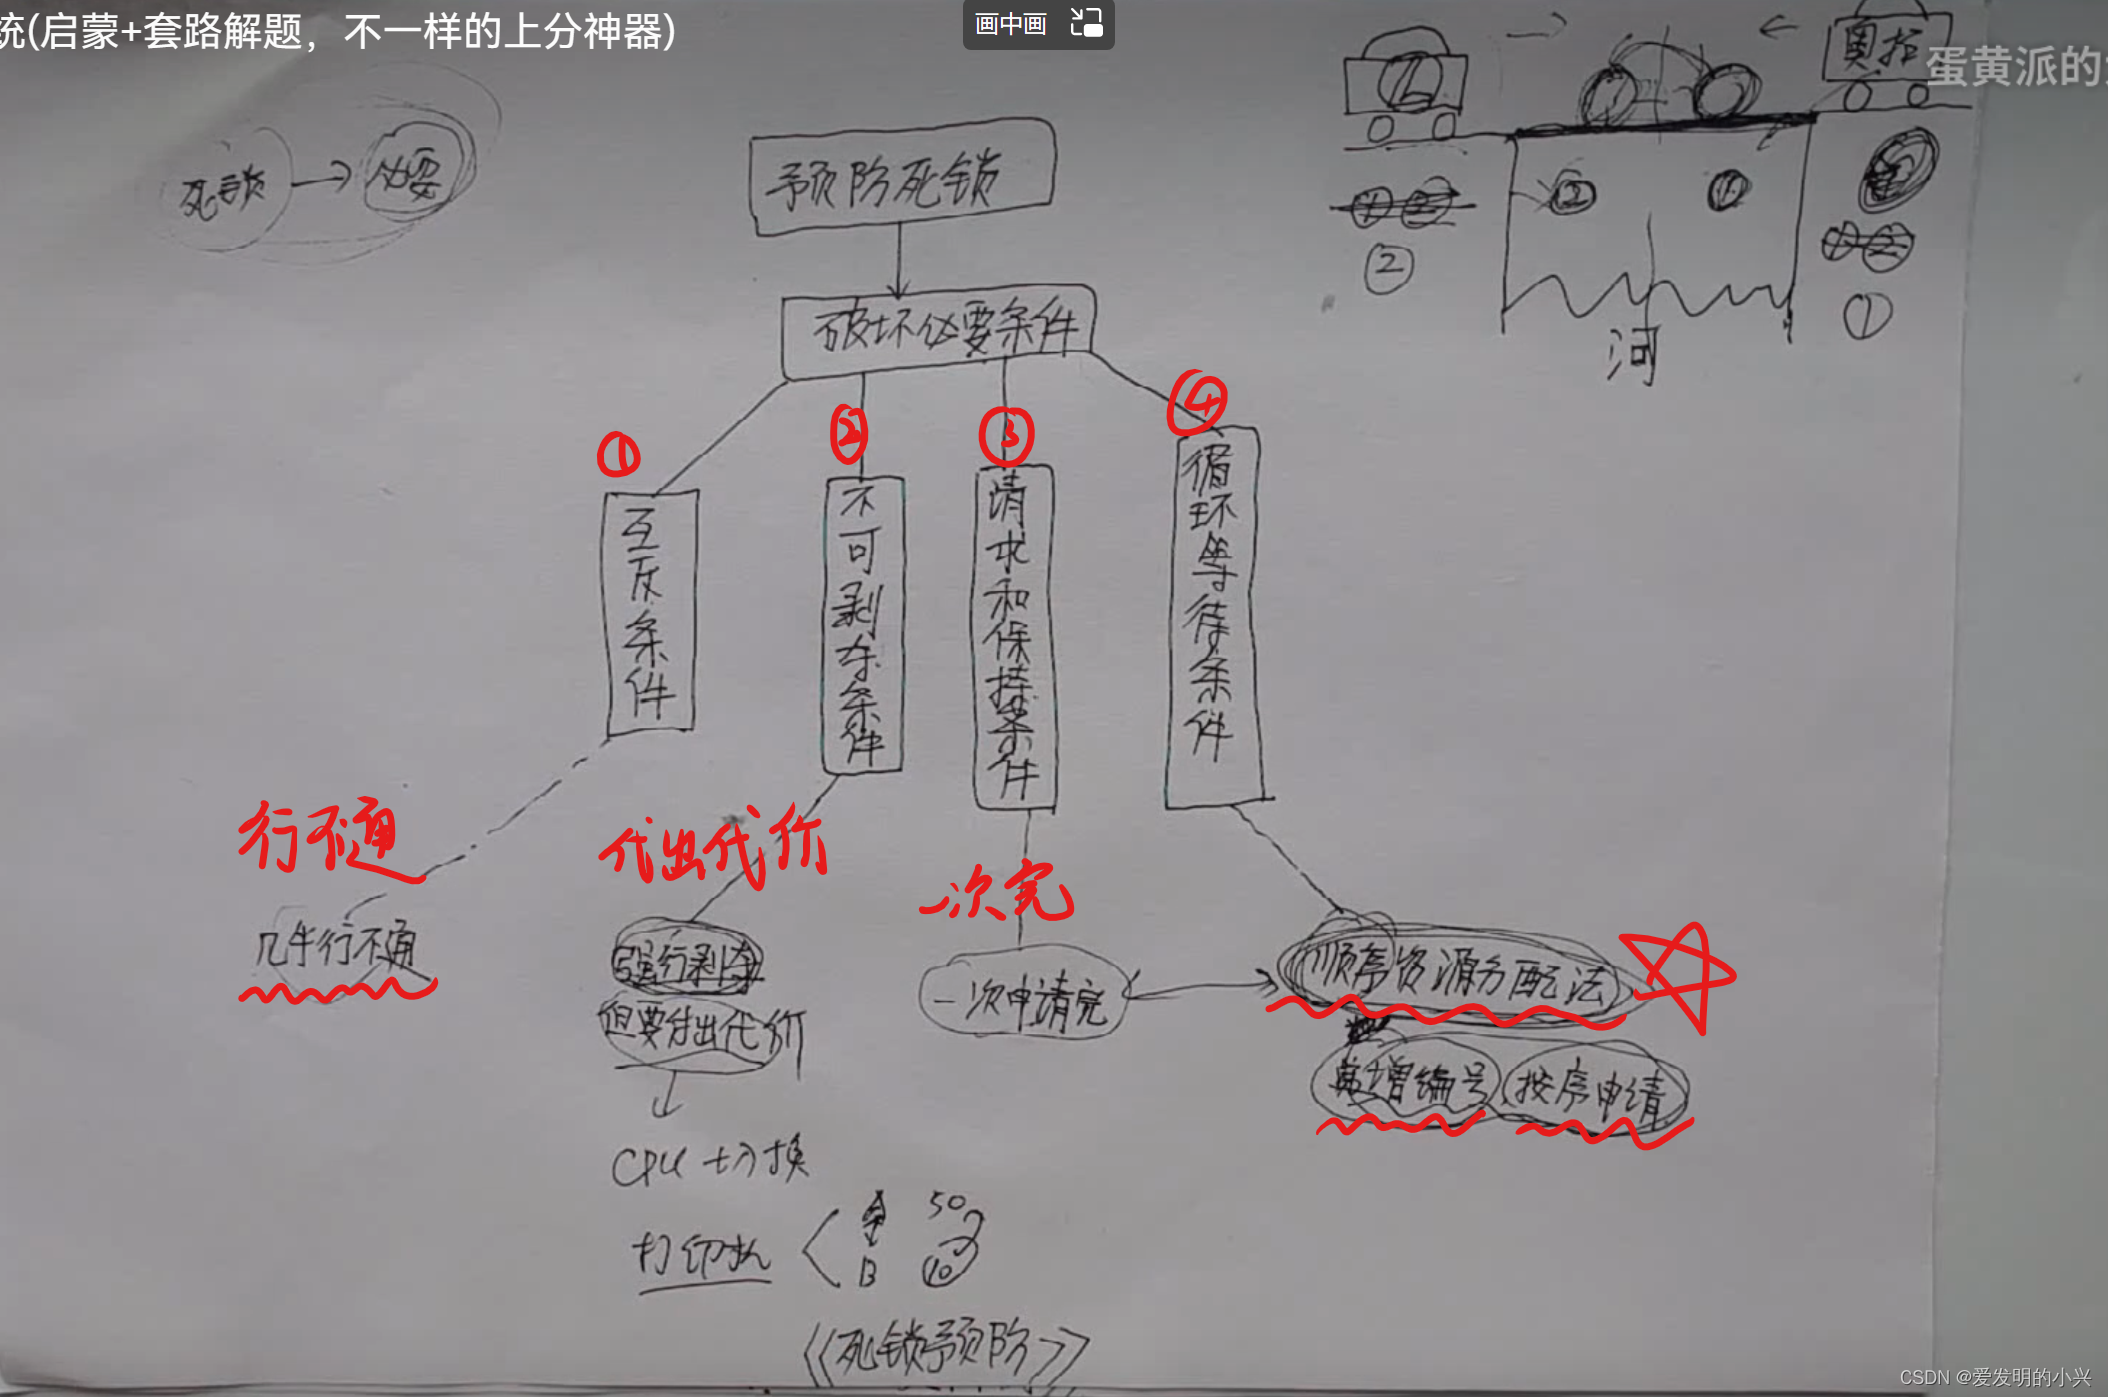 统(启蒙+套路解题，不一样的上分神器)
画中画
奥拓
蛋黄派的
死锁 → 必要
预防死锁
② ①
② ①
河
破坏必要条件
① ② ③ ④
互斥条件
不可剥夺条件
请求和保持条件
循环等待条件
行不通
代出代价
一次完
几乎行不通
强行剥夺
但要付出代价
一次申请完
顺序资源分配法
递增编号 按序申请
CPU 切换
打印机
A 50
B 10
《死锁预防》
CSDN @爱发明的小兴